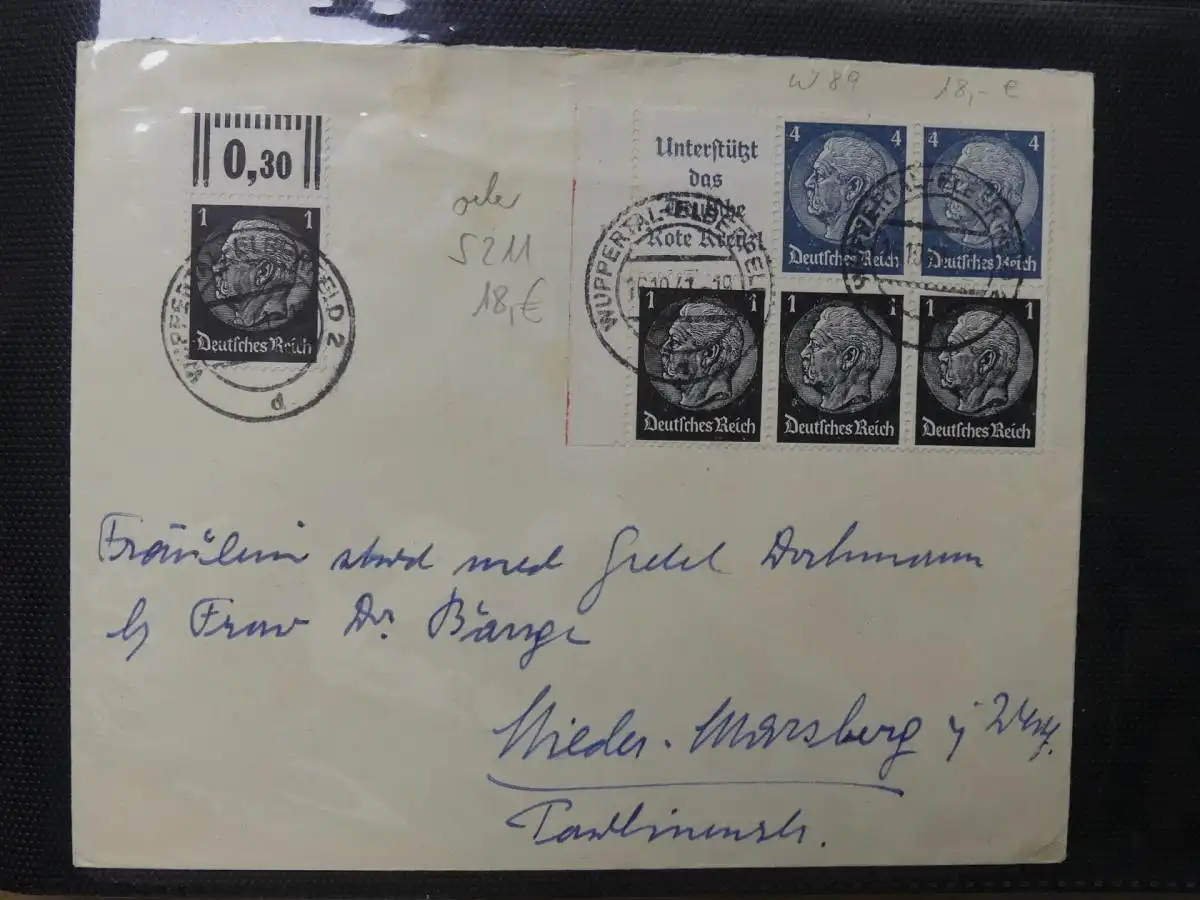 W 89 18,- €
0,30
oder
S 211
18,- €
1 1
Deutsches Reich
WUPPERTAL-ELBERFELD 2
d
Unterstützt
das
Deutsche
Rote Kreuz!
4 4
Deutsches Reich
4 4
Deutsches Reich
WUPPERTAL-ELBERFELD
10.41.-19
WUPPERTAL-ELBERFELD
1 1
Deutsches Reich
1 1
Deutsches Reich
1 1
Deutsches Reich
Fräulein stud med Gretel Dochmann
b/ Frau Dr. Bange
Nieder-Marsberg i/ Westf.
Paulinenstr.